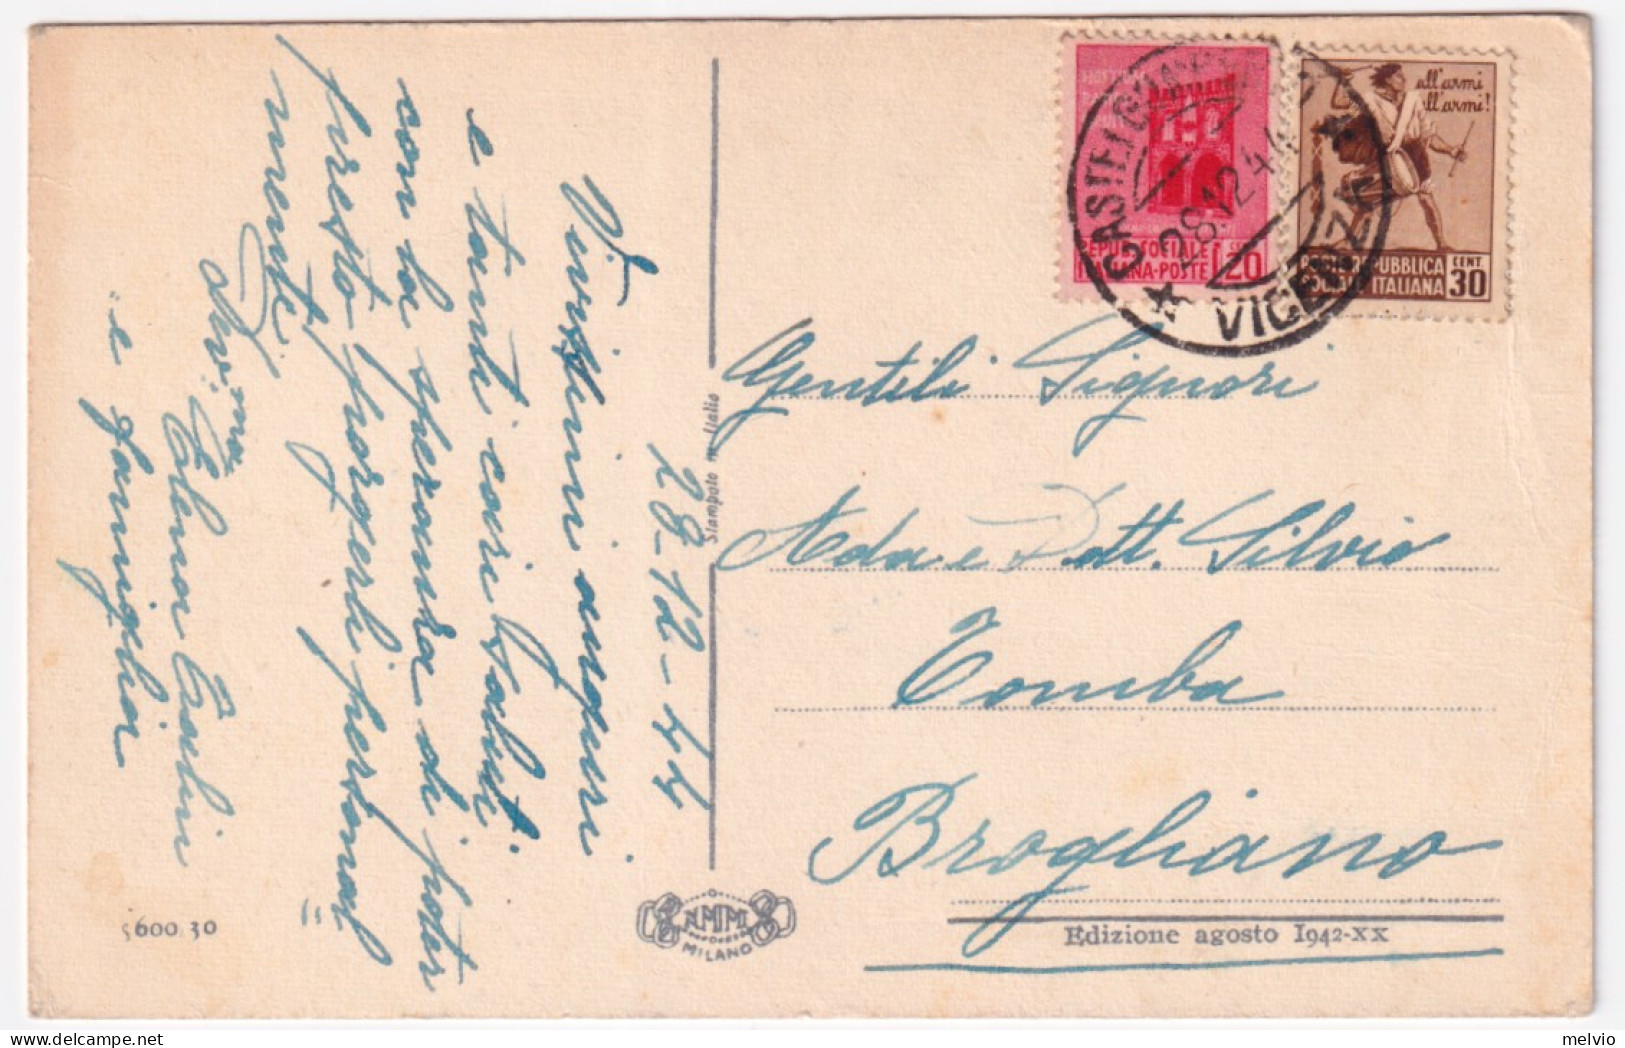 28-12-44
Vivissimi auguri
e tanti cari saluti
con la speranza di poter
presto porgerli personal
mente.
Elena
e famiglia
Stampato in Italia
5600 30
MILANO
CENT 20
REPUB. SOCIALE
ITALIANA-POSTE
all'armi
all'armi!
POSTE REPUBBLICA
SOCIALE ITALIANA
CENT 30
28.12.44
VICENZA
Gentili Signori
Ada e Dott. Silvio
Tomba
Brogliano
Edizione agosto 1942-XX
delcampe.net
melvio